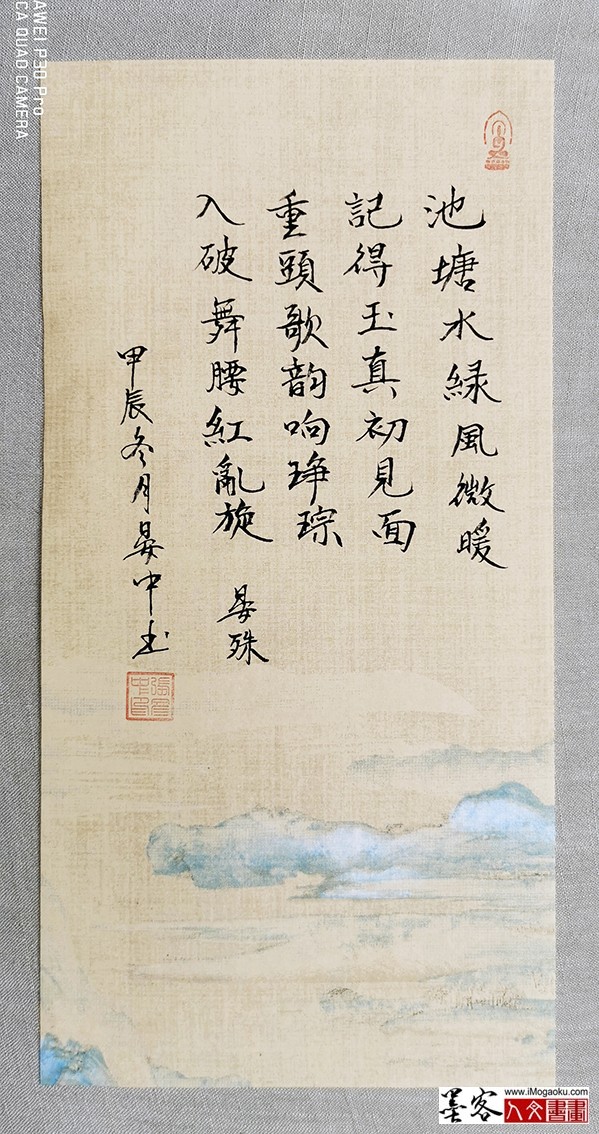 池塘水緑風微暖
記得玉真初見面
重頭歌韵响琤琮
入破舞腰紅亂旋
晏殊
甲辰冬月晏中书
張晏中印
AWEI P30 Pro
CA QUAD CAMERA
www.iMogaoku.com
墨客人文書畫